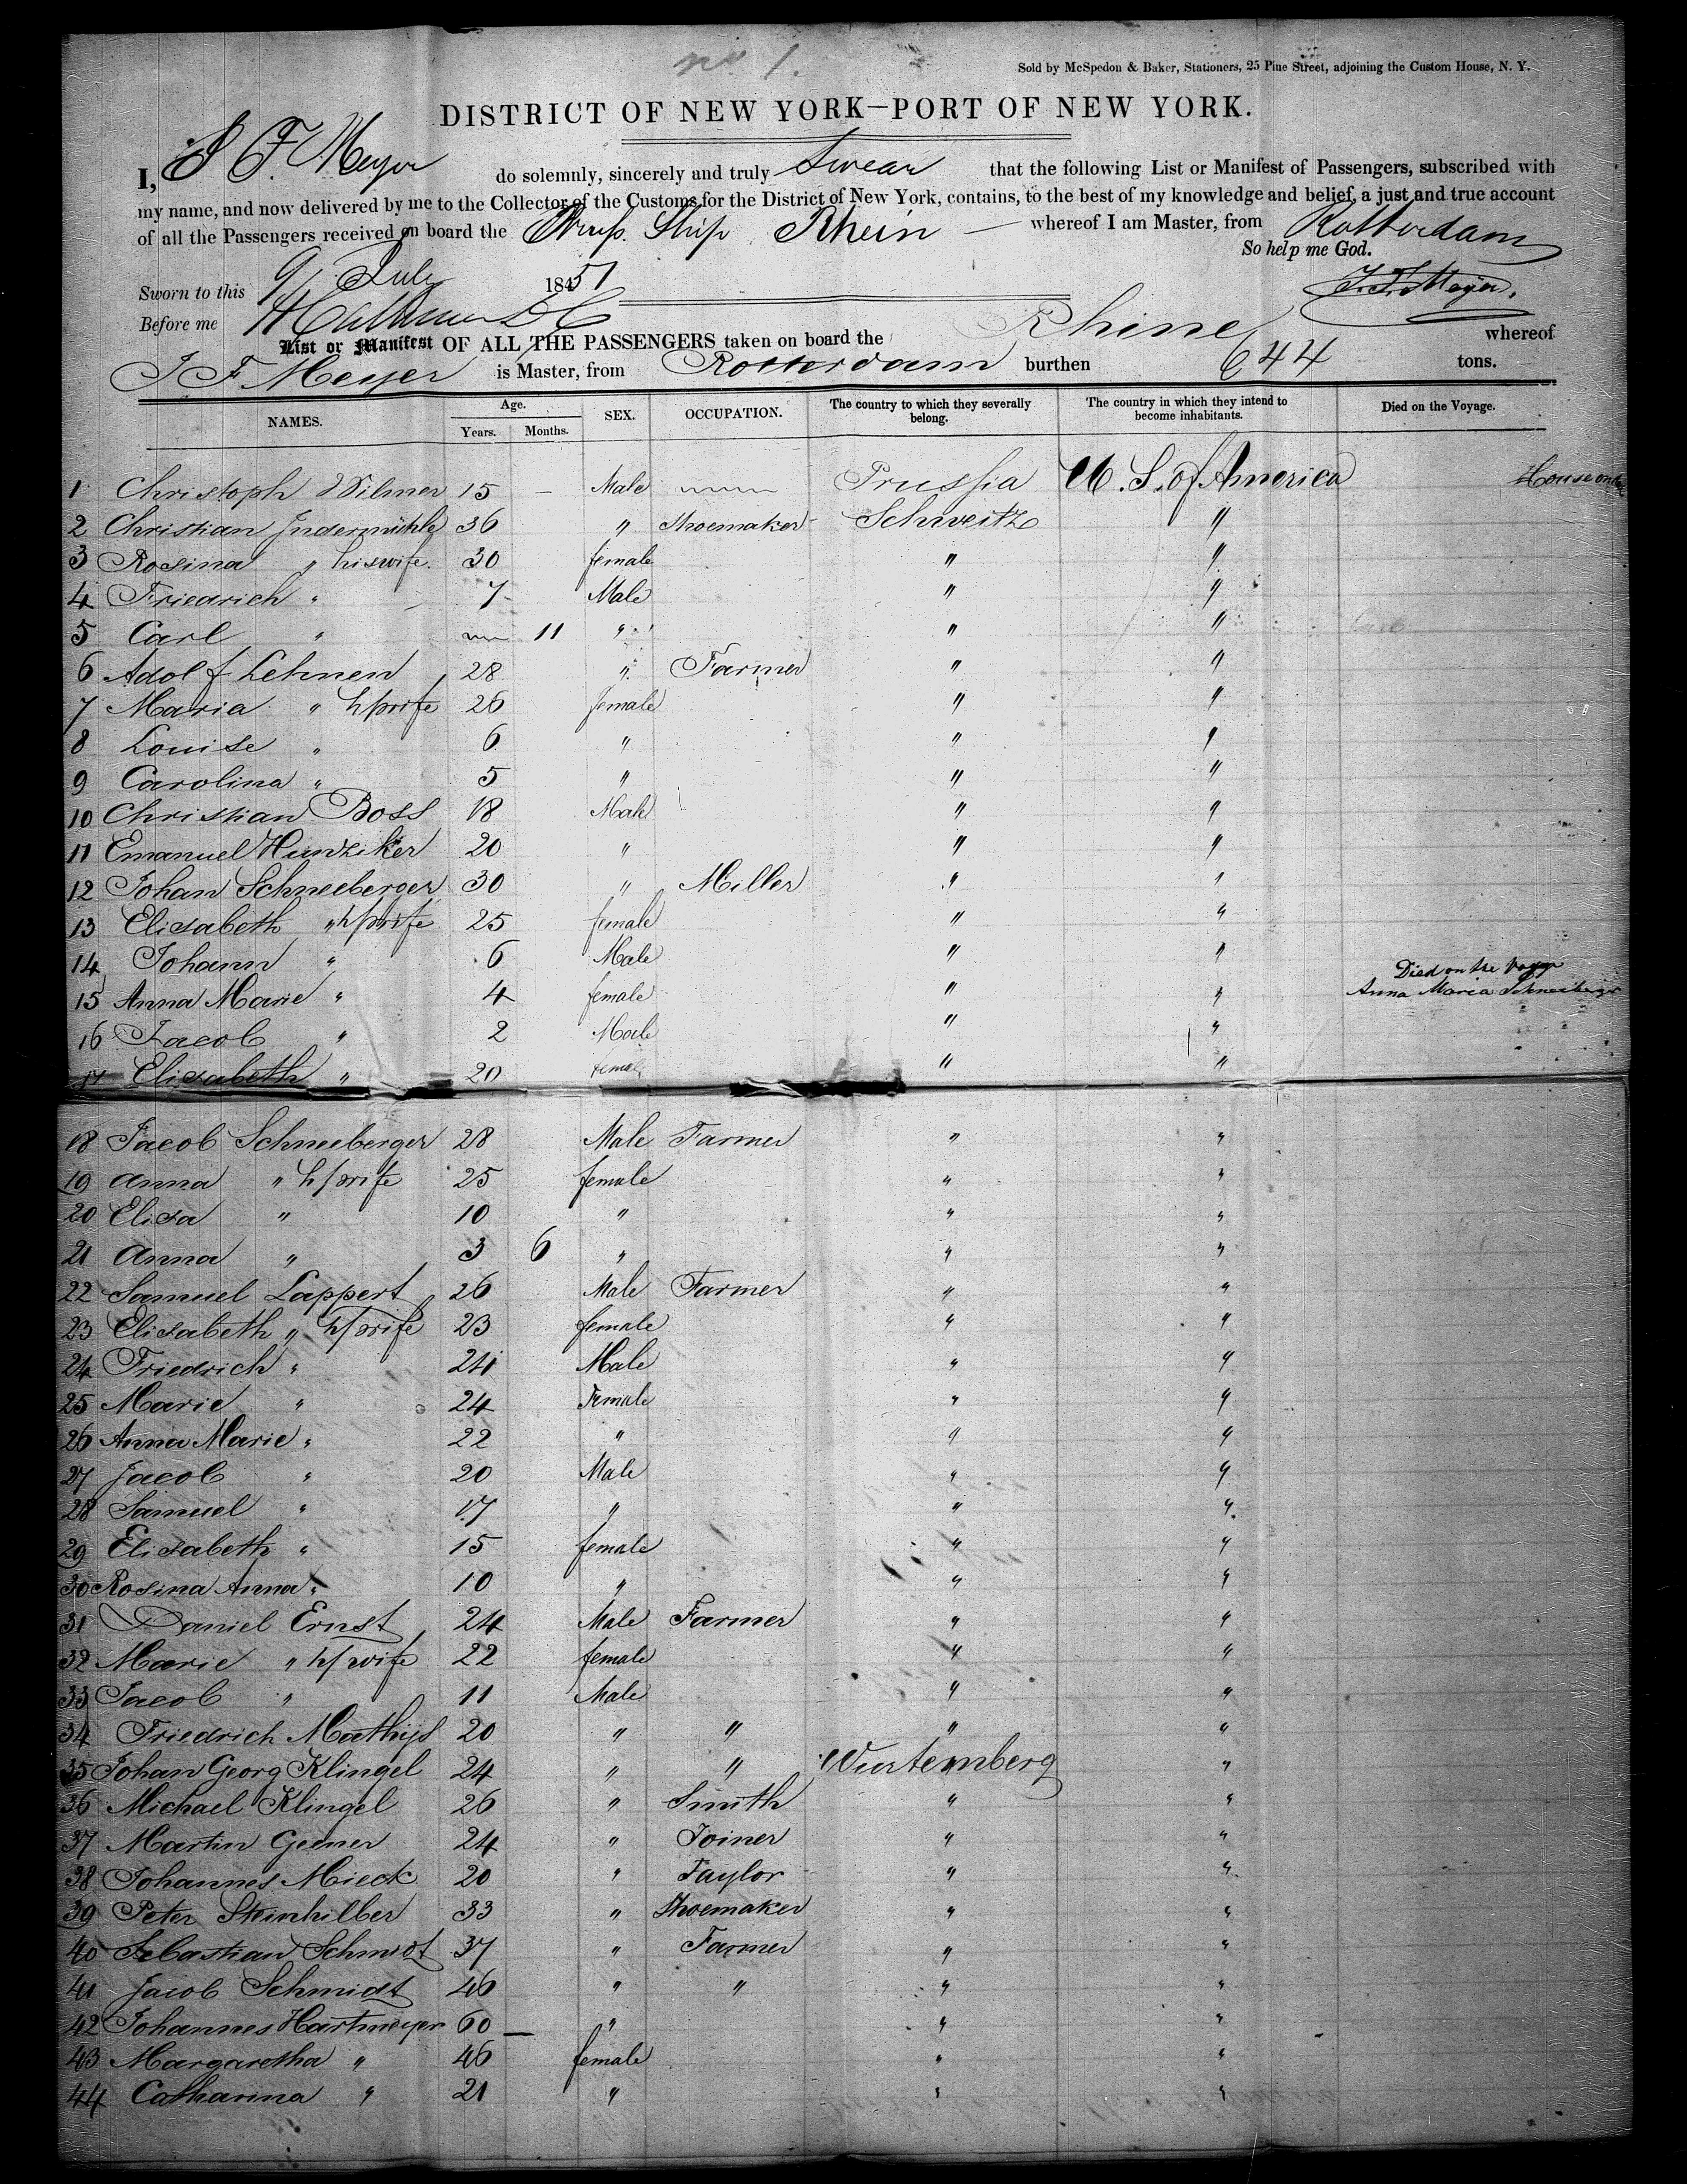 no 1.
Sold by McSpedon & Baker, Stationers, 25 Pine Street, adjoining the Custom House, N. Y.
DISTRICT OF NEW YORK—PORT OF NEW YORK.
I, J F. Meyer do solemnly, sincerely and truly Swear that the following List or Manifest of Passengers, subscribed with
my name, and now delivered by me to the Collector of the Customs for the District of New York, contains, to the best of my knowledge and belief, a just and true account
of all the Passengers received on board the Pruss. Ship Rhein — whereof I am Master, from Rotterdam
So help me God.
Sworn to this 9 July 1851 J. F. Meyer.
Before me
List or Manifest OF ALL THE PASSENGERS taken on board the Rhine whereof
J F Meyer is Master, from Rotterdam burthen 644 tons.
NAMES. Age. Years. Months. SEX. OCCUPATION. The country to which they severally belong. The country in which they intend to become inhabitants. Died on the Voyage.
1 Christoph Wilmer 15 — Male Prussia U. S. of America House on deck
2 Christian Indermühle 36 " Shoemaker Schweitz "
3 Rosina " his wife. 30 female " "
4 Friedrich " 7 Male " "
5 Carl " 11 " " "
6 Adolf Lehnen 28 " Farmer " "
7 Maria " h/wife 26 female " "
8 Louise " 6 " " "
9 Carolina " 5 " " "
10 Christian Boss 18 Male " "
11 Emanuel Hunziker 20 " " "
12 Johan Schneeberger 30 " Miller " "
13 Elisabeth " h/wife 25 female " "
14 Johann " 6 Male " "
Died on the Voyge
15 Anna Marie " 4 female " " Anna Maria Schneeberger
16 Jacob " 2 Male " "
17 Elisabeth " 20 female " "
18 Jacob Schneeberger 28 Male Farmer " "
19 Anna " h/wife 25 female " "
20 Elisa " 10 " " "
21 Anna " 3 6 " " "
22 Samuel Lappert 26 Male Farmer " "
23 Elisabeth " h/wife 23 female " "
24 Friedrich " 24 Male " "
25 Marie " 24 Female " "
26 Anna Marie " 22 " " "
27 Jacob " 20 Male " "
28 Samuel " 17 " " "
29 Elisabeth " 15 female " "
30 Rosina Anna " 10 " " "
31 Daniel Ernst 24 Male Farmer " "
32 Marie " h/wife 22 female " "
33 Jacob " 11 Male " "
34 Friedrich Mathys 20 " " " "
35 Johan Georg Klingel 24 " " Wurtemberg "
36 Michael Klingel 26 " Smith " "
37 Martin Geener 24 " Joiner " "
38 Johannes Mieck 20 " Taylor " "
39 Peter Steinhilber 33 " Shoemaker " "
40 Sebastian Schmidt 37 " Farmer " "
41 Jacob Schmidt 46 " " " "
42 Johannes Hartmeyer 60 — " " "
43 Margaretha " 46 female " "
44 Catharina " 21 " " "